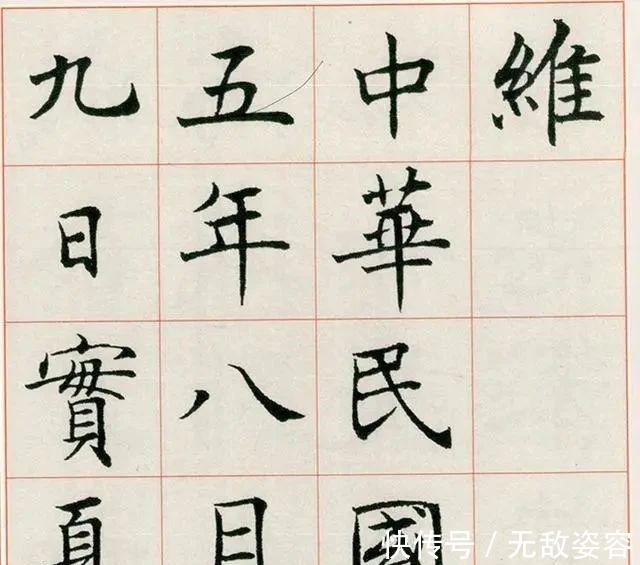 維
中華民國
五年八月
九日實
快传号 / 无敌姿容